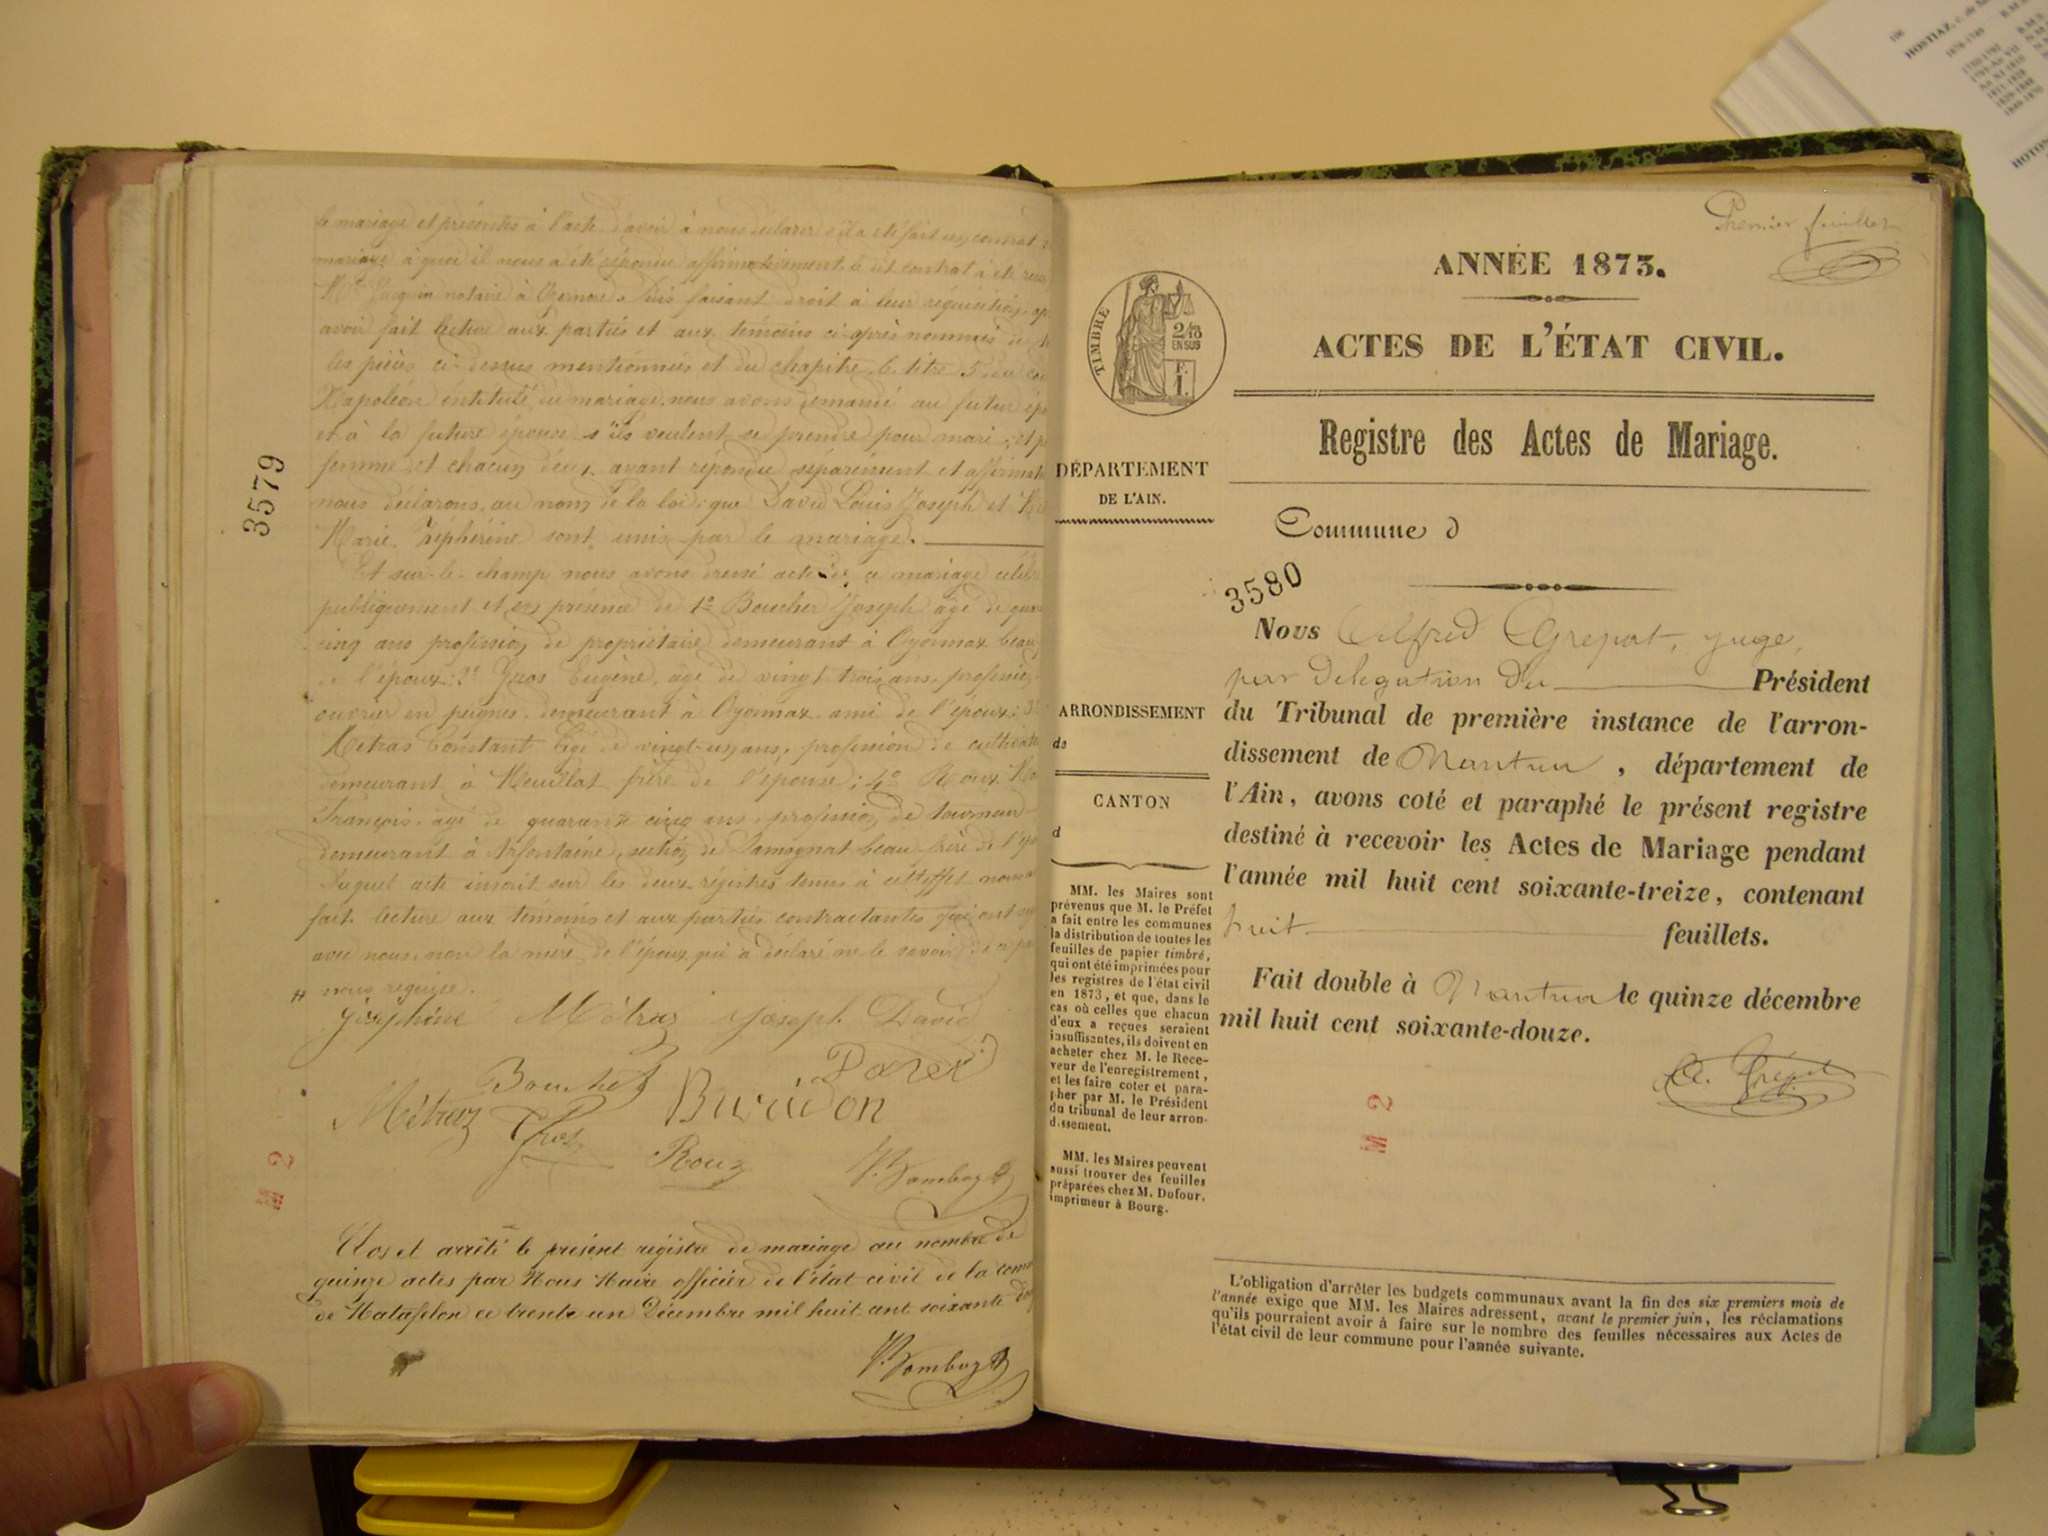 3579
le mariage et présentes à l'acte d'avoir à nous déclarer s'il a été fait un contrat
mariage à quoi il nous a été répondu affirmativement et cet contrat à été reçu
Me notaire à Puis faisant droit à leur réquisition,
avoir fait lecture aux parties et aux témoins ci-après nommés de
les pièces ci-dessus mentionnées et du chapitre 6 titre 5 du
Napoléon intitulé du mariage, nous avons demandé au futur
et à la future épouse s'ils veulent se prendre pour mari et
femme et chacun d'eux ayant répondu séparément et
nous déclarons, au nom de la loi, que David Louis Joseph et
Marie sont unis par le mariage.
Et sur-le-champ nous avons dressé acte de ce mariage
publiquement et en présence de 1o Joseph âgé de
cinq ans profession de propriétaire demeurant à Oyonnax beau
de l'époux; 2o Gros Eugène, âgé de vingt trois ans, profession
ouvrier en peignes, demeurant à Oyonnax ami de l'époux;
Métras Constant âgé de vingt-un ans, profession de
demeurant à frère de l'épouse; 4o Roux
François, âgé de quarante cinq ans, profession de tourneur
demeurant à Arfontaine, section de Samognat beau frère de
Duquel acte inscrit sur les deux régistres tenus à cet effet nous
fait lecture aux témoins et aux parties contractantes qui ont
avec nous, non la mère de l'époux qui a déclaré ne le savoir de ce
nous requise.
Métraz Joseph David
Bouchet
Métraz Gros Buvidon
Roux
Clos et arrêté le présent régistre de mariage au nombre de
quinze actes par Nous Maire officier de l'état civil de la
de Matafelon ce trente un Décembre mil huit cent soixante
M 2
Premier feuillet
ANNÉE 1873.
ACTES DE L'ÉTAT CIVIL.
TIMBRE
2/10
EN SUS
F.
1.
Registre des Actes de Mariage.
DÉPARTEMENT
DE L'AIN.
Commune d
3580
Nous Alfred Grepat, juge,
par Delegation Du Président
du Tribunal de première instance de l'arron-
dissement de Nantua, département de
l'Ain, avons coté et paraphé le présent registre
destiné à recevoir les Actes de Mariage pendant
l'année mil huit cent soixante-treize, contenant
huit feuillets.
Fait double à Nantua le quinze décembre
mil huit cent soixante-douze.
M 2
ARRONDISSEMENT
de
CANTON
d
MM. les Maires sont
prévenus que M. le Préfet
a fait entre les communes
la distribution de toutes les
feuilles de papier timbré,
qui ont été imprimées pour
les registres de l'état civil
en 1873, et que, dans le
cas où celles que chacun
d'eux a reçues seraient
insuffisantes, ils doivent en
acheter chez M. le Rece-
veur de l'enregistrement,
et les faire coter et para-
pher par M. le Président
du tribunal de leur arron-
dissement.
MM. les Maires peuvent
aussi trouver des feuilles
préparées chez M. Dufour,
imprimeur à Bourg.
L'obligation d'arrêter les budgets communaux avant la fin des six premiers mois de
l'année exige que MM. les Maires adressent, avant le premier juin, les réclamations
qu'ils pourraient avoir à faire sur le nombre des feuilles nécessaires aux Actes de
l'état civil de leur commune pour l'année suivante.